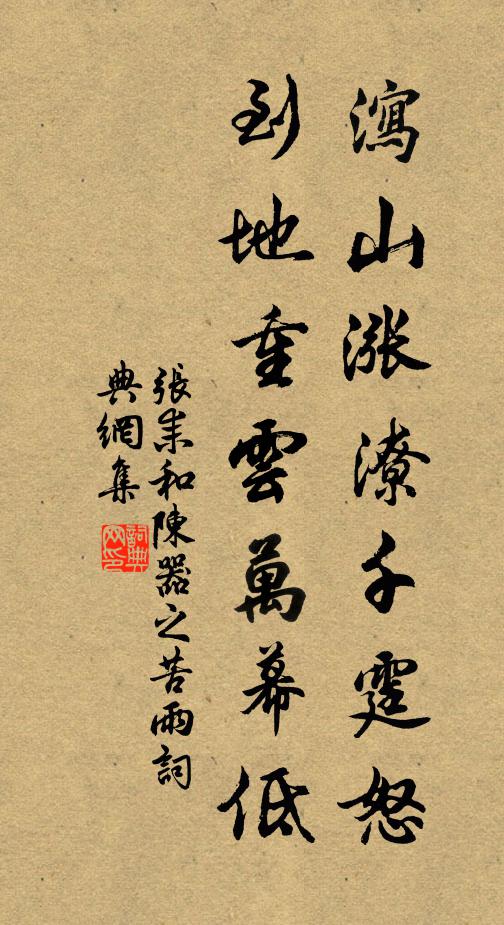 瀉山漲潦千霆怒
到地重雲萬幕低
張耒和陳器之苦雨詞
典網集
詞典
网印